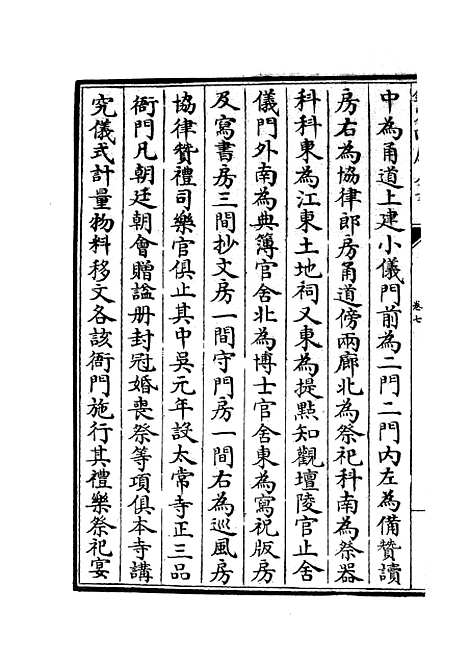 卷七
中為甬道上建小儀門前為二門二門内左為備贊讀
房右為協律郎房甬道傍兩廊北為祭祀科南為祭器
科科東為江東土地祠又東為提點知觀壇陵官止舍
儀門外南為典簿官舍北為博士官舍東為寫祝版房
及寫書房三間抄文房一間守門房一間右為巡風房
協律贊禮司樂官俱止其中吳元年設太常寺正三品
衙門凡朝廷朝會贈諡册封冠婚喪祭等項俱本寺講
究儀式計量物料移文各該衙門施行其禮樂祭祀宴